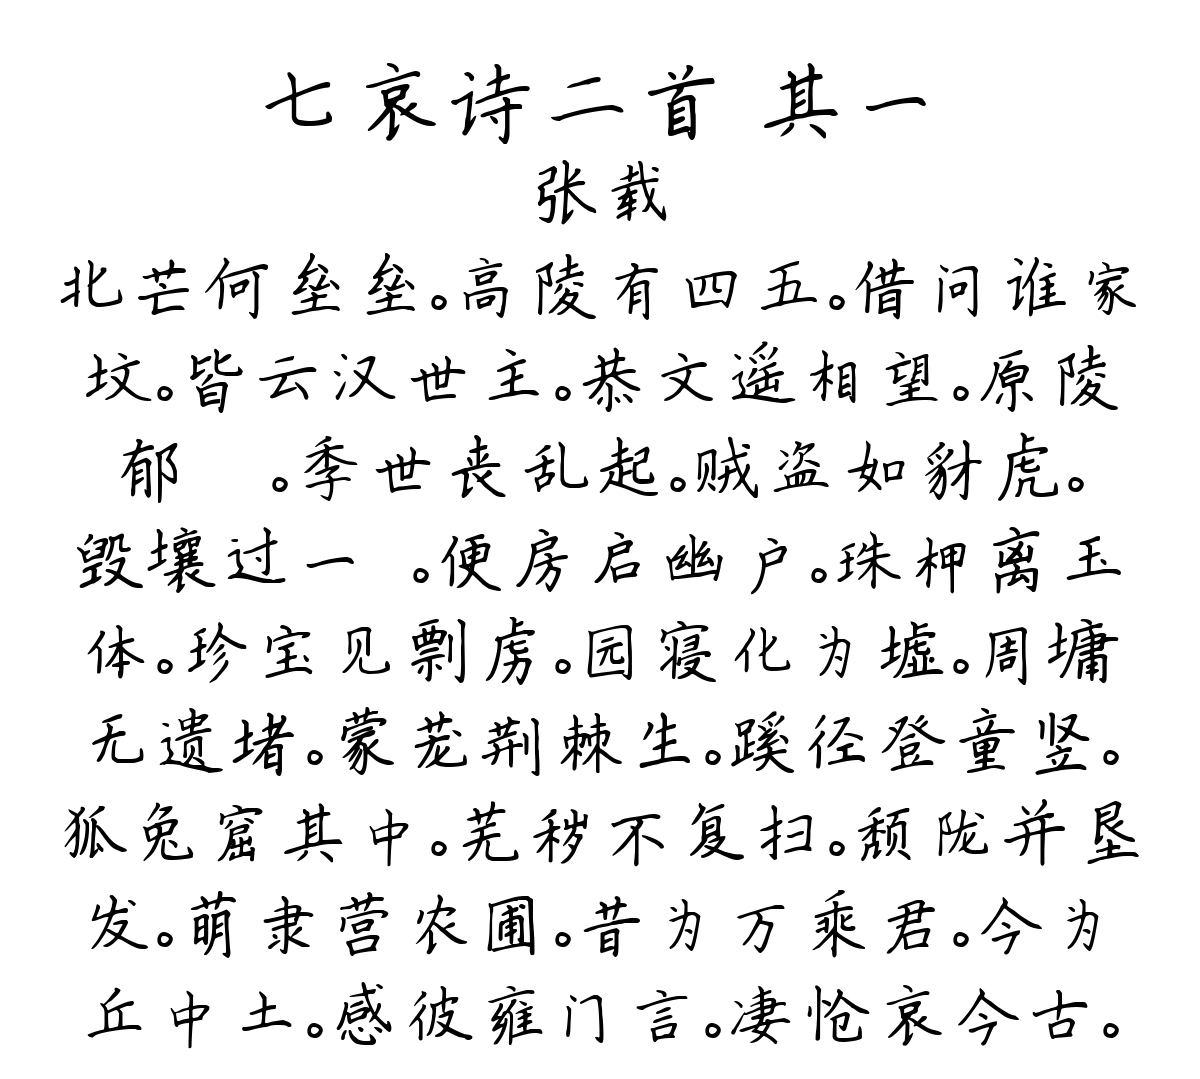 七哀诗二首 其一
张载
北芒何垒垒。高陵有四五。借问谁家
坟。皆云汉世主。恭文遥相望。原陵
郁　。季世丧乱起。贼盗如豺虎。
毁壤过一 。便房启幽户。珠柙离玉
体。珍宝见剽虏。园寝化为墟。周墉
无遗堵。蒙茏荆棘生。蹊径登童竖。
狐兔窟其中。芜秽不复扫。颓陇并垦
发。萌隶营农圃。昔为万乘君。今为
丘中土。感彼雍门言。凄怆哀今古。